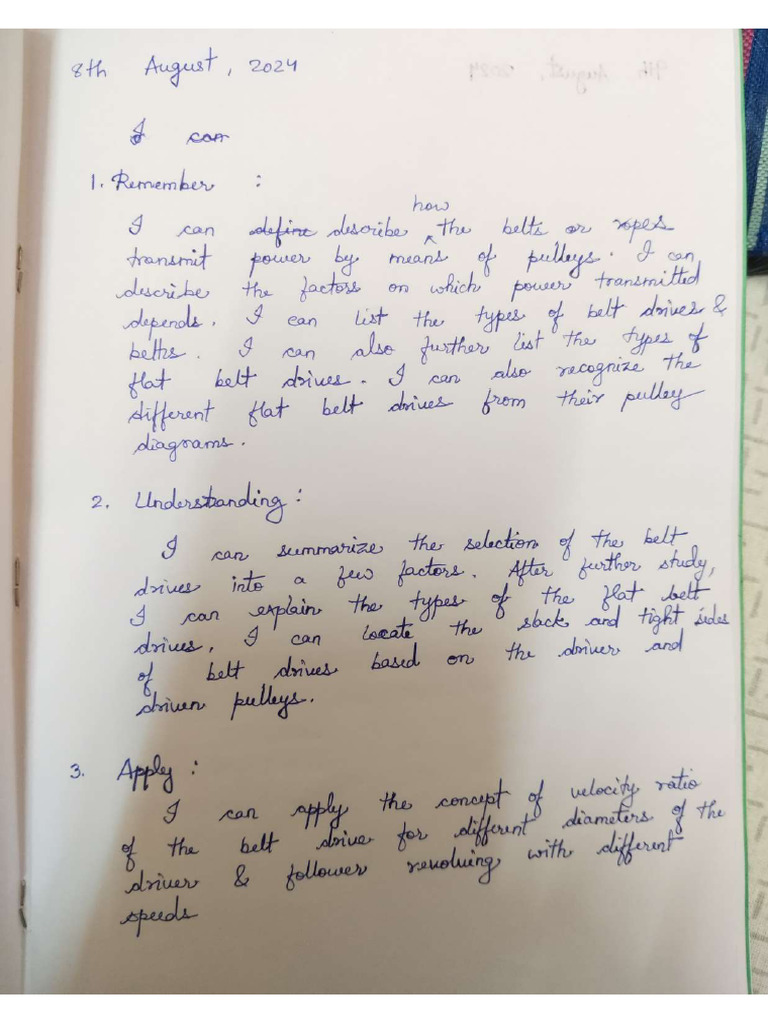 8th August, 2024
I can
1. Remember :
how
I can define describe the belts or ropes
transmit power by means of pulleys. I can
describe the factors on which power transmitted
depends. I can list the types of belt drives &
belths. I can also further list the types of
flat belt drives. I can also recognize the
different flat belt drives from their pulley
diagrams.
2. Understanding :
I can summarize the selection of the belt
drives into a few factors. After further study,
I can explain the types of the flat belt
drives. I can locate the slack and tight sides
of belt drives based on the driver and
driven pulleys.
3. Apply :
I can apply the concept of velocity ratio
of the belt drive for different diameters of the
driver & follower revolving with different
speeds